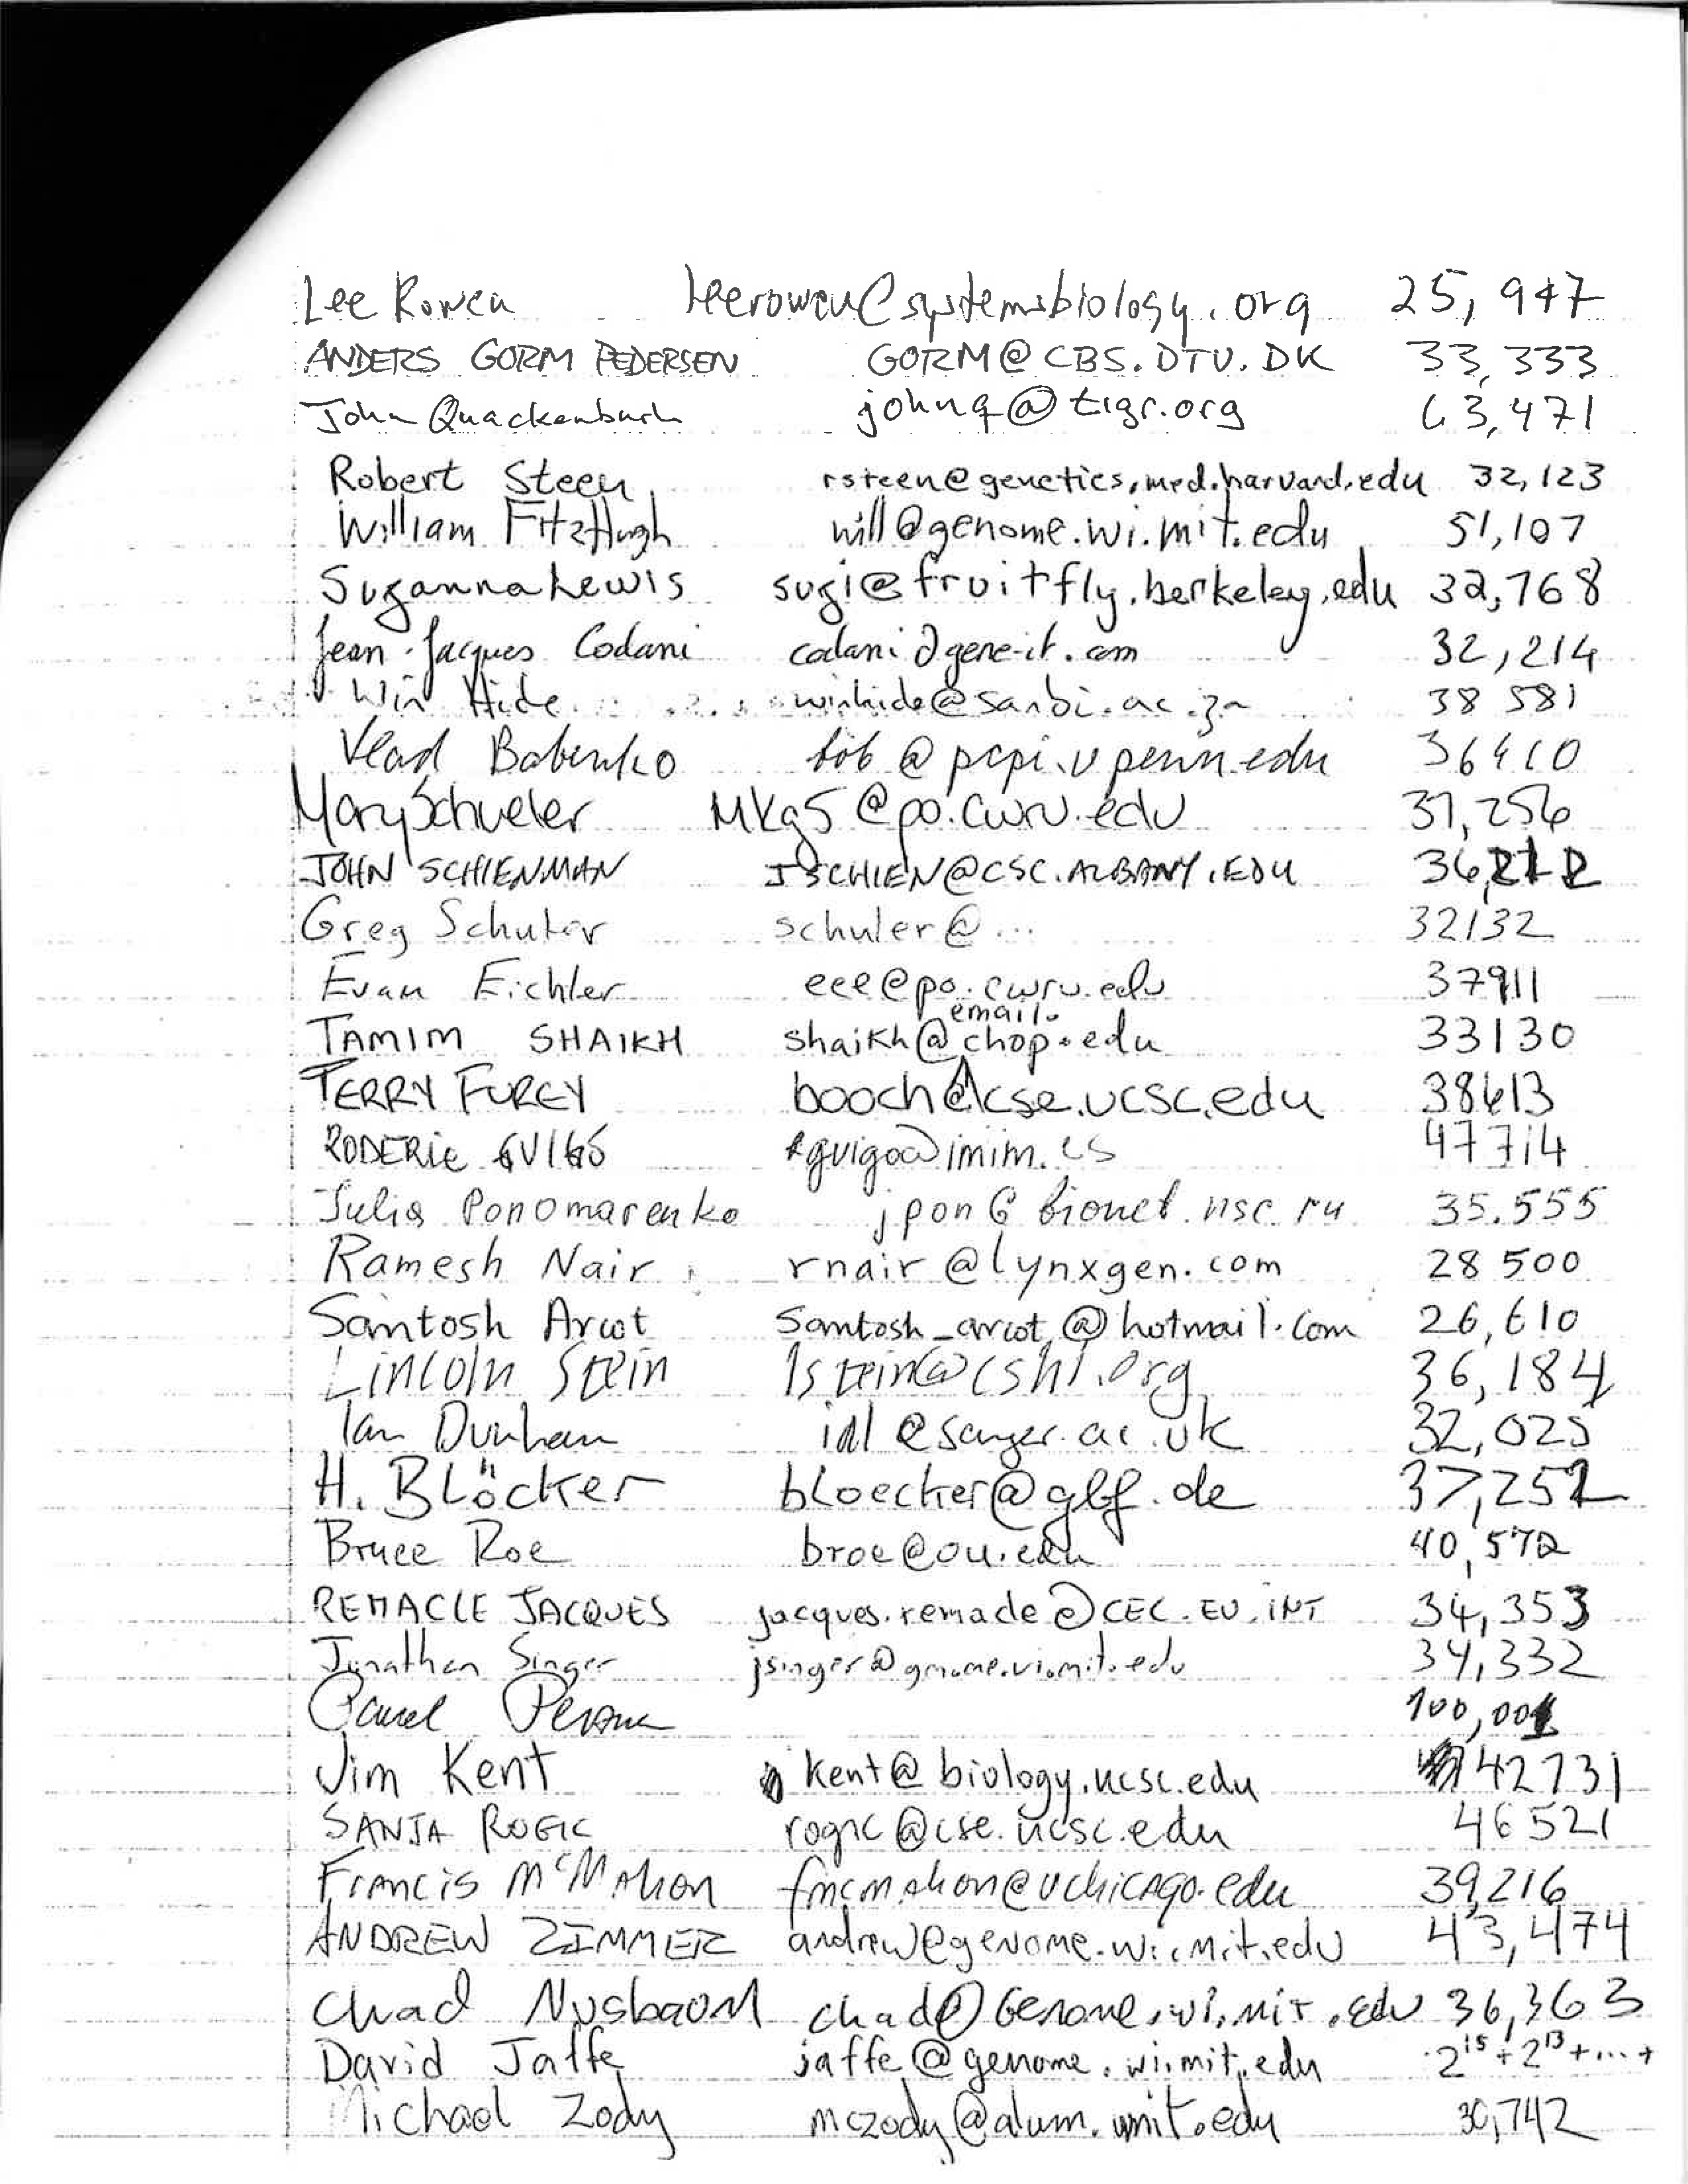 Lee Rowen leerowen@systemsbiology.org 25,947
ANDERS GORM PEDERSEN GORM@CBS.DTU.DK 33,333
John Quackenbush johnq@tigr.org 63,471
Robert Steen rsteen@genetics.med.harvard.edu 32,123
William FitzHugh will@genome.wi.mit.edu 51,107
Suzanna Lewis suzi@fruitfly.berkeley.edu 32,768
Jean-Jacques Codani codani@gene-it.com 32,214
Win Hide winhide@sanbi.ac.za 38 581
Vlad Babenko bob@pcpi.upenn.edu 36410
Mary Schueler MKg5@po.cwru.edu 31,256
JOHN SCHIENMAN JSCHIEN@CSC.ALBANY.EDU 36,212
Greg Schuler schuler@... 32132
Evan Eichler eee@po.cwru.edu 37911
TAMIM SHAIKH shaikh@email.chop.edu 33130
TERRY FUREY booch@cse.ucsc.edu 38613
RODERIC GUIGÓ rguigo@imim.es 47714
Julia Ponomarenko jpon@bionet.nsc.ru 35.555
Ramesh Nair rnair@lynxgen.com 28 500
Santosh Arcot Santosh_arcot@hotmail.com 26,610
Lincoln Stein lstein@cshl.org 36,184
Ian Dunham id1@sanger.ac.uk 32,025
H. BLöcker bloecker@gbf.de 37,252
Bruce Roe broe@ou.edu 40,572
REMACLE JACQUES jacques.remacle@CEC.EU.INT 34,353
Jonathan Singer jsinger@genome.wi.mit.edu 34,332
100,001
Jim Kent kent@biology.ucsc.edu 42731
SANJA ROGIC rogic@cse.ucsc.edu 46521
Francis McMahon fmcmahon@uchicago.edu 39,216
ANDREW ZIMMER andrew@genome.wi.mit.edu 43,474
Chad Nusbaum chad@Genome.wi.mit.edu 36,363
David Jaffe jaffe@genome.wi.mit.edu 2¹⁵+2¹³+...+
Michael Zody mczody@alum.mit.edu 30,742